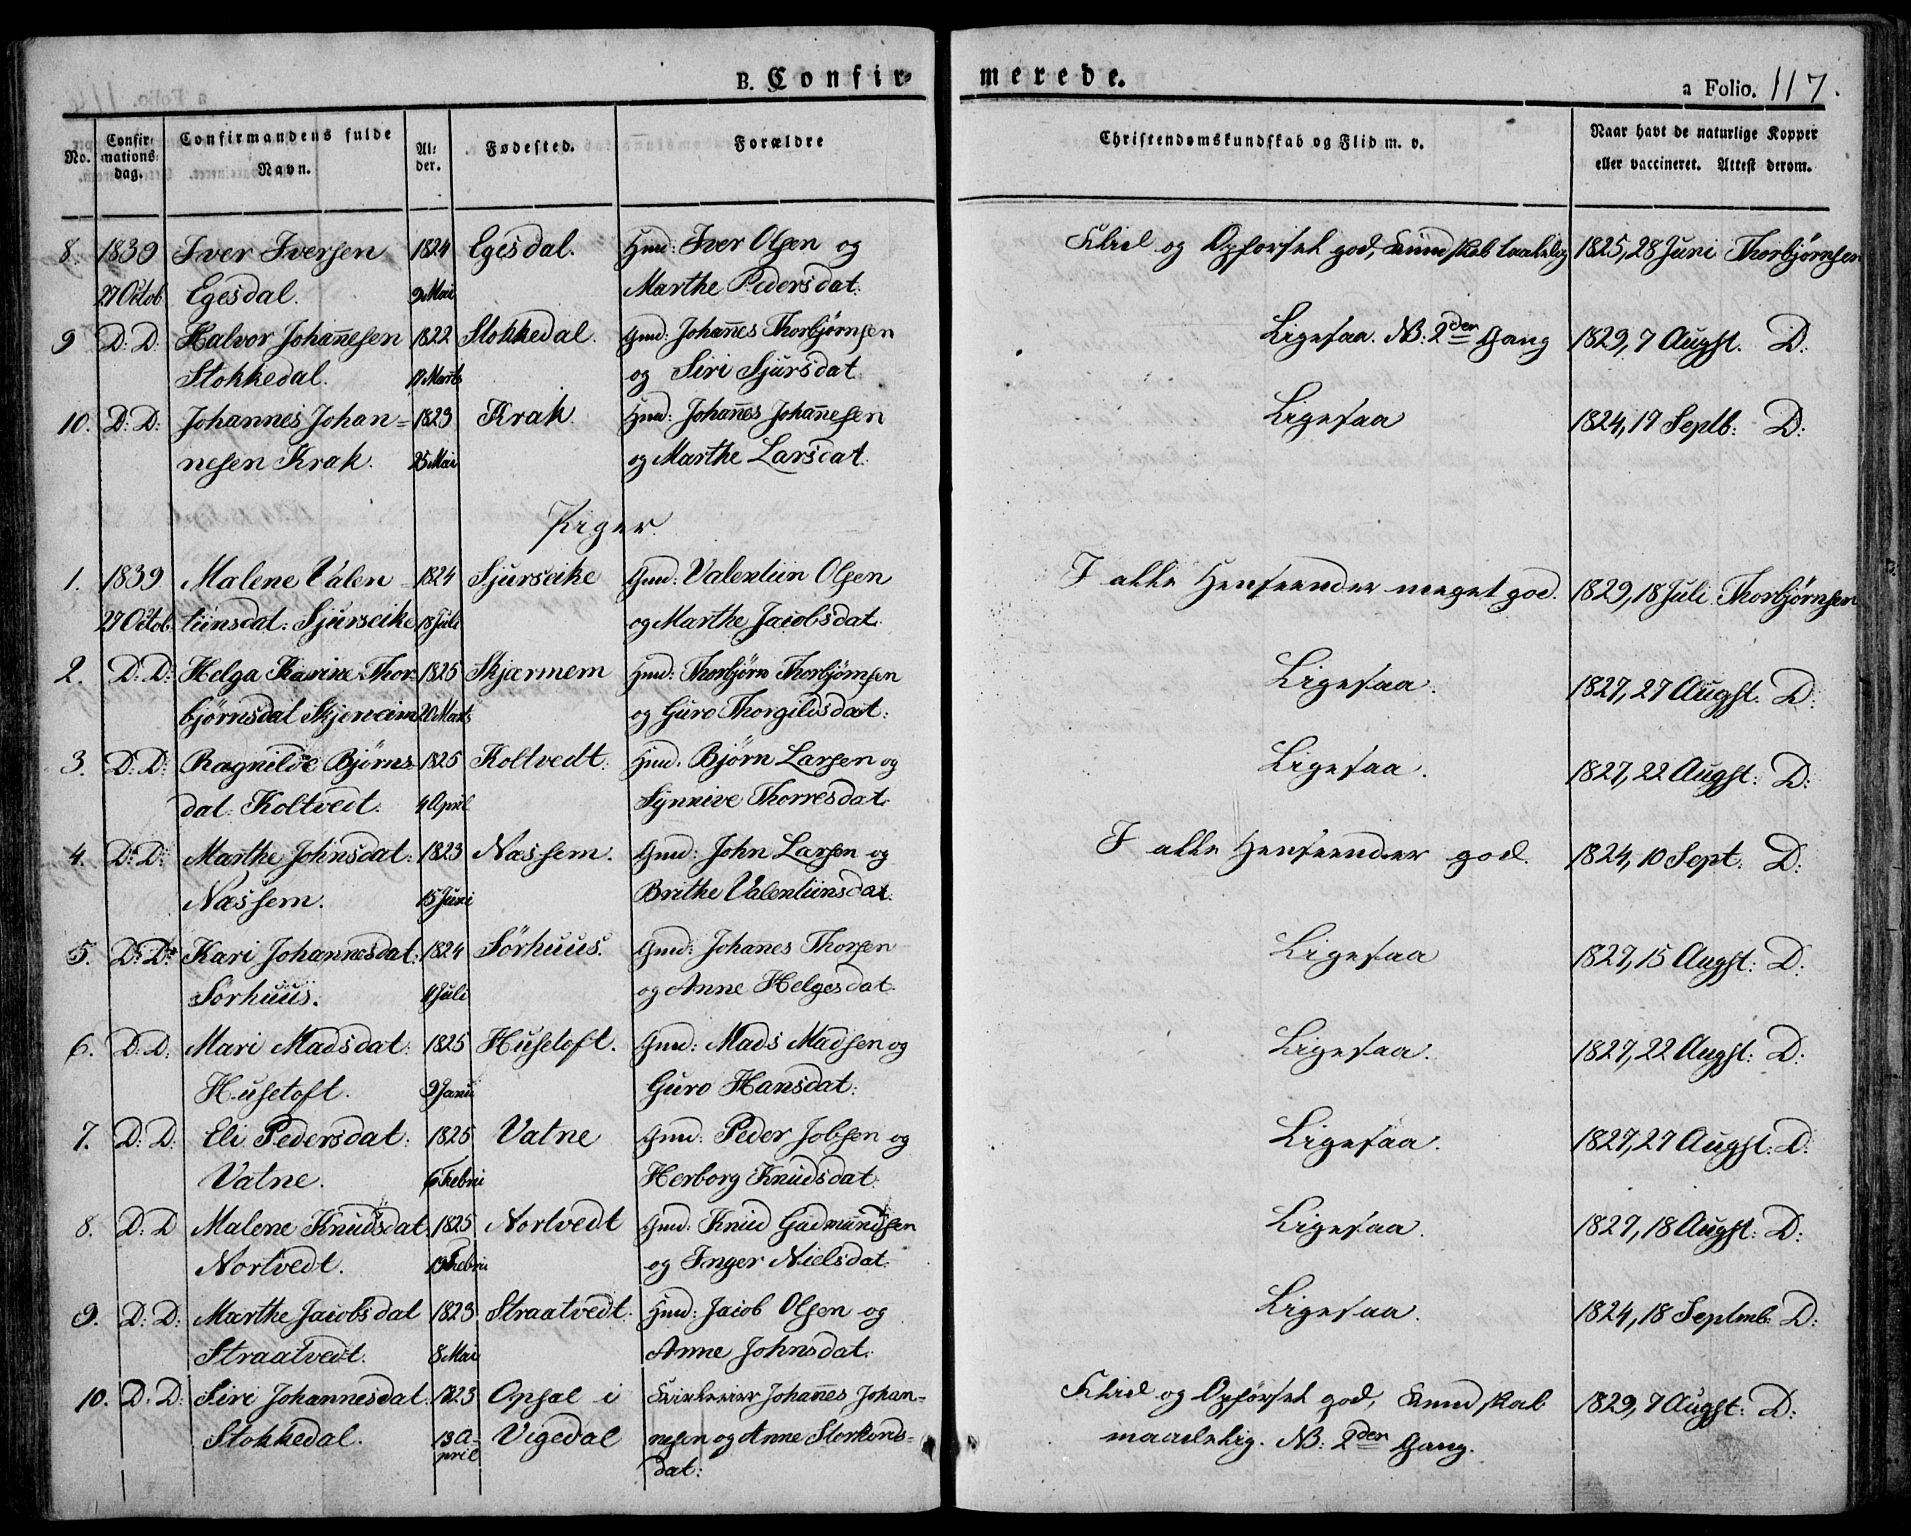 B. Confir-
merede.
a Folio. 117.
No.
Confir-
mations-
dag.
Confirmandens fulde
Navn.
Al-
der.
Fødested.
Forældre
Christendomskundskab og Flid m. v.
Naar havt de naturlige Kopper
eller vaccineret. Attest derom.
8. 1839 Iver Iversen 1824 Egesdal. Gmd: Iver Olsen og Flid og Opførsel god, Kundskab taalelig 1825, 28 Juni Thorbjørnsen
27 Octob Egesdal. 9 Mai Marthe Pedersdat:
9 D: D: Halvor Johannesen 1822 Stokkedal. Gmd: Johannes Thorbjørnsen Ligesaa. NB: 2den Gang 1829, 7 Augst. D:
Stokkedal. 17 Marts og Siri Sjursdat
10. D: D: Johannes Johan= 1823 Krak Gmd: Johannes Johannesen Ligesaa 1824, 19 Septb: D:
nesen Krak. 25 Mai og Marthe Larsdat:
Piger.
1. 1839 Malene Valen 1824 Sjurseike Gmd: Valentiin Olsen I alle Henseender meget god. 1829, 18 Juli Thorbjørnsen
27 Octob tiinsdat: Sjurseike 18 Juli og Marthe Jacobsdat:
2. D: D: Helga Karine Thor 1825 Skjærmem Gmd: Thorbjørn Thorbjørnsen Ligesaa. 1827, 27 Augst. D:
bjørnsdat Skjerveim 20 Marts og Guro Thorgilsdat:
3. D: D: Ragnilde Bjørns 1825 Koltvedt. Gmd. Bjørn Larsen og Ligesaa. 1827, 22 Augst: D:
dat. Koltvedt. 4 April Synnive Thorresdat.
4. D: D: Marthe Johnsdat: 1823 Næssem. Gmd: John Larsen og I alle Henseender god. 1824, 10 Sept: D:
Næssem. 15 Juni Brithe Valentiinsdat.
5. D: D: Kari Johannesdat: 1824 Sørhuus. Gmd: Johanes Thorsen Ligesaa 1827, 15 Augst: D:
Sørhuus. 4 Juli og Anne Helgesdat
6. D: D: Mari Madsdat: 1825 Husetoft. Gmd: Mads Madsen og Ligesaa. 1827, 22 Augst: D:
Husetoft. 9 Janu Guro Hansdat:
7. D: D: Eli Pedersdat: 1825 Vatne Gmd: Peder Jobsen og Ligesaa. 1827, 27 Augst: D:
Vatne. 6 Febru Herborg Knudsdat
8. D: D Malene Knudsdat. 1825 Nortvedt Gmd: Knud Gudmundsen Ligesaa. 1827, 18 Augst: D:
Nortvedt. 13 Febru og Inger Nielsdat.
9. D: D: Marthe Jacobsdat 1823 Straatvedt. Gmd: Jacob Olsen og Ligesaa. 1824, 18 Septmb: D:
Straatvedt. 8 Mai Anne Johnsdat.
10. D: D: Siri Johannesdat: 1823 Opsal i Johannes Johan- Flid og Opførsel god, Kundskab 1829, 7 Augst: D:
Stokkedal. 13 A- Vigedal nesen og Anne Storkors- maadelig. NB: 2den Gang.
pril dat: